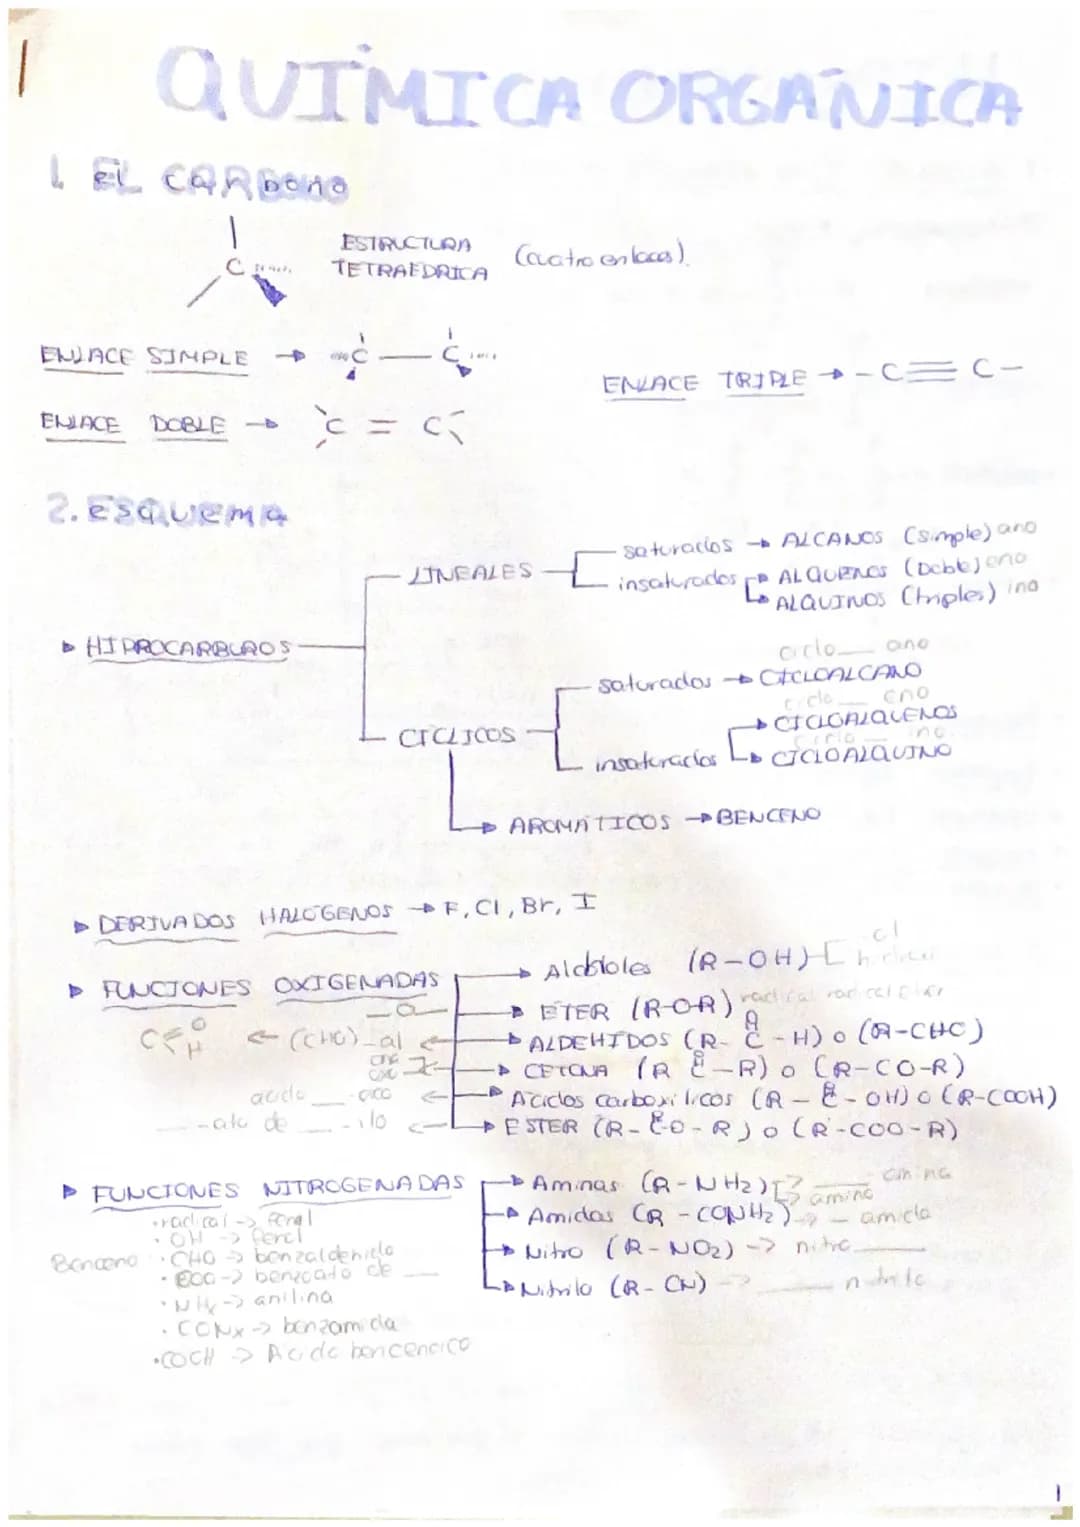 QUÍMICA ORGÁNICA
1. EL CARBONO
ESTRUCTURA TETRAEDRICA (cuatro enlaces).
C
ENLACE SIMPLE → C — C
ENLACE TRIPLE → - C ≡ C -
ENLACE DOBLE → C = C
2. ESQUEMA
HIDROCARBUROS
LINEALES
saturados → ALCANOS (simple) ano
insaturados → ALQUENOS (Doble) eno
→ ALQUINOS (triples) ino
CICLICOS
ciclo__ ano
saturados → CICLOALCANO
ciclo__ eno
→ CICLOALQUENOS
ciclo__ ino
insaturados → CICLOALQUINO
→ AROMÁTICOS → BENCENO
DERIVADOS HALÓGENOS → F, Cl, Br, I
FUNCIONES OXIGENADAS
→ Alcoholes (R-OH)
→ ÉTER (R-O-R) radical radical éter
C=O H ← (CHO) _al ← → ALDEHIDOS (R-C-H) o (R-CHO)
O
→ CETONA (R C-R) o (R-CO-R)
O
acido __-oico ← → Acidos carboxilicos (R-C-OH) o (R-COOH)
O
__-ato de __-ilo ← → ESTER (R-CO-R) o (R-COO-R)
FUNCIONES NITROGENADAS
→ Aminas (R-NH2) → __ amina
→ amino
→ Amidas (R-CONH2) → __ amida
→ Nitro (R-NO2) → nitro __
→ Nitrilo (R-CN) → __ nitrilo
Benceno
· radical → fenil
· OH → fenol
· CHO → benzaldehido
· COO → benzoato de __
· NHx → anilina
· CONx → benzamida
· COOH → Acido bencencico
1